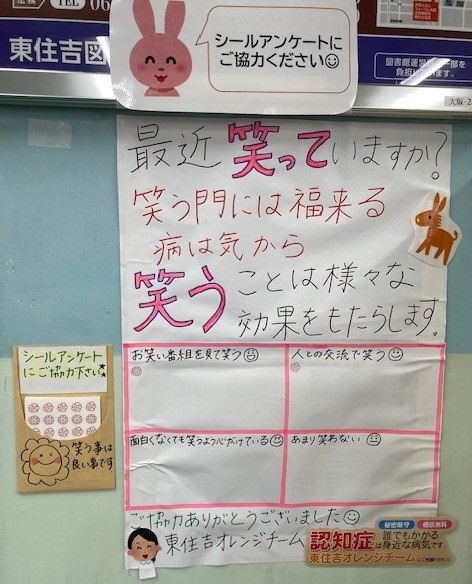 TEL 06
東住吉図
図書館運営
部を
負担しています。
大阪-2
シールアンケートに
ご協力ください☺
最近 笑っていますか?
笑う門には福来る
病は気から
笑うことは様々な
効果をもたらします。
お笑い番組を見て笑う☺
人との交流で笑う☺
面白くなくても笑うよう心がけている☺
あまり笑わない😐
シールアンケート
にご協力下さい
笑う事は
良い事です
ご協力ありがとうございました☺
東住吉オレンジチーム
秘密厳守 相談無料
認知症は誰でもかかる
身近な病気です
東住吉オレンジチーム